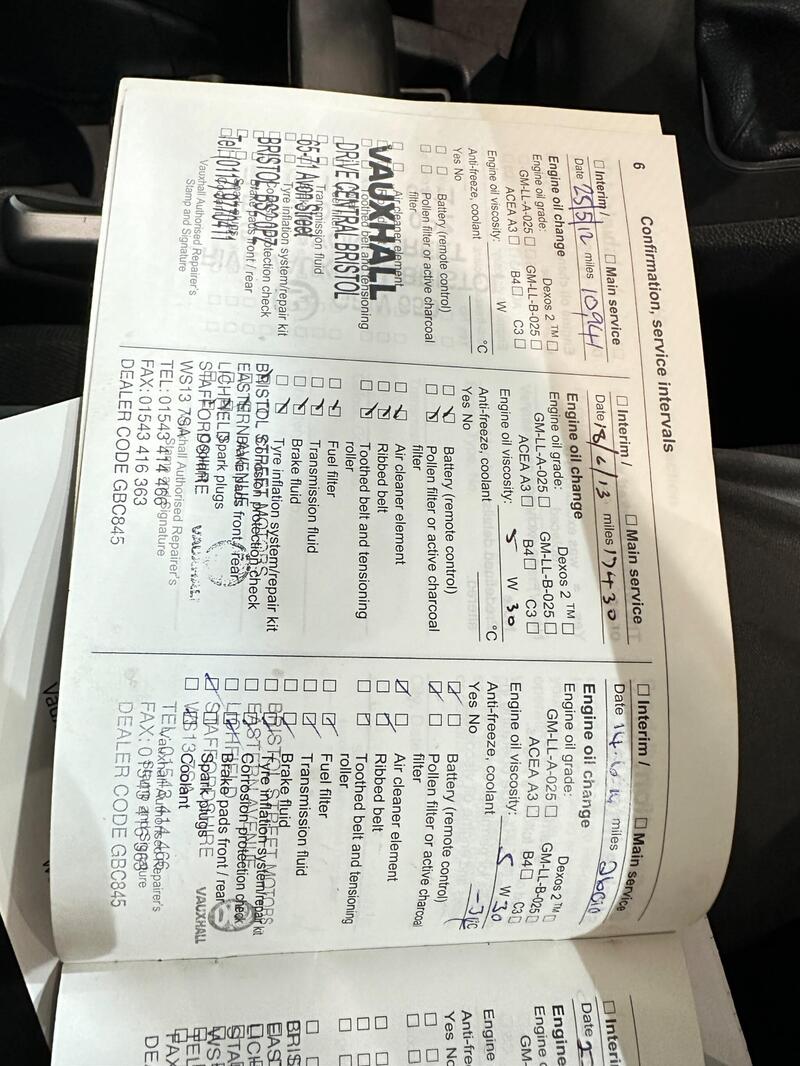 6
Confirmation, service intervals
☐ Interim / ☐ Main service
Date 25/5/12 miles 10941
Engine oil change
Engine oil grade: Dexos 2 ™ ☐
GM-LL-A-025 ☐ GM-LL-B-025 ☐
ACEA A3 ☐ B4 ☐ C3 ☐
Engine oil viscosity: W
Anti-freeze, coolant °C
Yes No
☐ ☐ Battery (remote control)
☐ ☐ Pollen filter or active charcoal
filter
Air cleaner element
VAUXHALL
Toothed belt and tensioning
DRIVE CENTRAL BRISTOL
Fuel filter
Transmission fluid
65-71 Avon Street
Tyre inflation system/repair kit
BRISTOL BS2 0PZ
Brake pads front / rear
Vauxhall Authorised Repairer's
Stamp and Signature
☐ Interim / ☐ Main service
Date 18/6/13 miles 17430
Engine oil change
Engine oil grade: Dexos 2 ™ ☐
GM-LL-A-025 ☐ GM-LL-B-025 ☐
ACEA A3 ☐ B4 ☐ C3 ☐
Engine oil viscosity: 5 W 30
Anti-freeze, coolant °C
Yes No
Battery (remote control)
Pollen filter or active charcoal
filter
Air cleaner element
Ribbed belt
Toothed belt and tensioning
roller
Fuel filter
Transmission fluid
Brake fluid
Tyre inflation system/repair kit
Corrosion protection check
BRISTOL STREET MOTORS
Brake pads front / rear
EASTERN AVENUE
Spark plugs
LICHFIELD
STAFFORDSHIRE
VAUXHALL
WS13 7SA
Vauxhall Authorised Repairer's
Stamp & Signature
TEL: 01543 414 466
FAX: 01543 416 363
DEALER CODE GBC845
☐ Interim / ☐ Main service
Date 14.6.14 miles
Engine oil change
Engine oil grade: Dexos 2 ™ ☐
GM-LL-A-025 ☐ GM-LL-B-025 ☐
ACEA A3 ☐ B4 ☐ C3 ☐
Engine oil viscosity: 5 W 30
Anti-freeze, coolant °C
Yes No
Battery (remote control)
Pollen filter or active charcoal
filter
Air cleaner element
Ribbed belt
Toothed belt and tensioning
roller
Fuel filter
Transmission fluid
Brake fluid
BRISTOL STREET MOTORS
Tyre inflation system/repair kit
EASTERN AVENUE
Corrosion protection check
LICHFIELD
Brake pads front / rear
STAFFORDSHIRE
Spark plugs
VAUXHALL
WS13
Coolant
Vauxhall Authorised Repairer's
Stamp & Signature
TEL: 01543 414 466
FAX: 01543 416 363
DEALER CODE GBC845
☐ Interim
Date 2
Engine
Engine o
GM-
Engine
Anti-fre
Yes No
BRIS
EAS
LICH
STA
WS
TEL
FAX
DEA